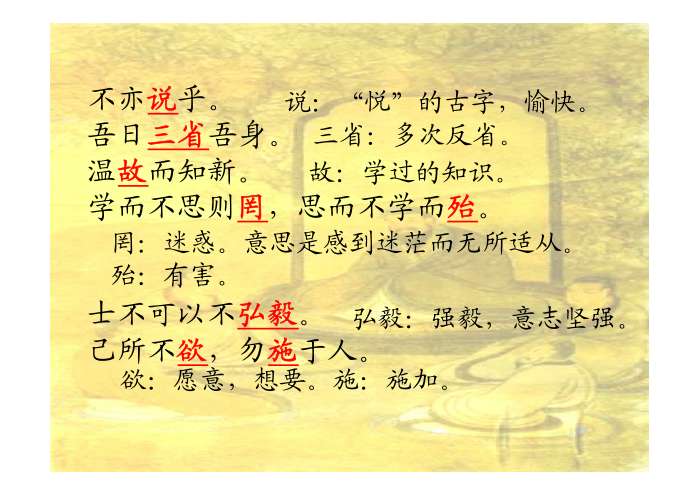 不亦说乎。 说：“悦”的古字，愉快。
吾日三省吾身。 三省：多次反省。
温故而知新。 故：学过的知识。
学而不思则罔，思而不学而殆。
罔：迷惑。意思是感到迷茫而无所适从。
殆：有害。
士不可以不弘毅。 弘毅：强毅，意志坚强。
己所不欲，勿施于人。
欲：愿意，想要。施：施加。